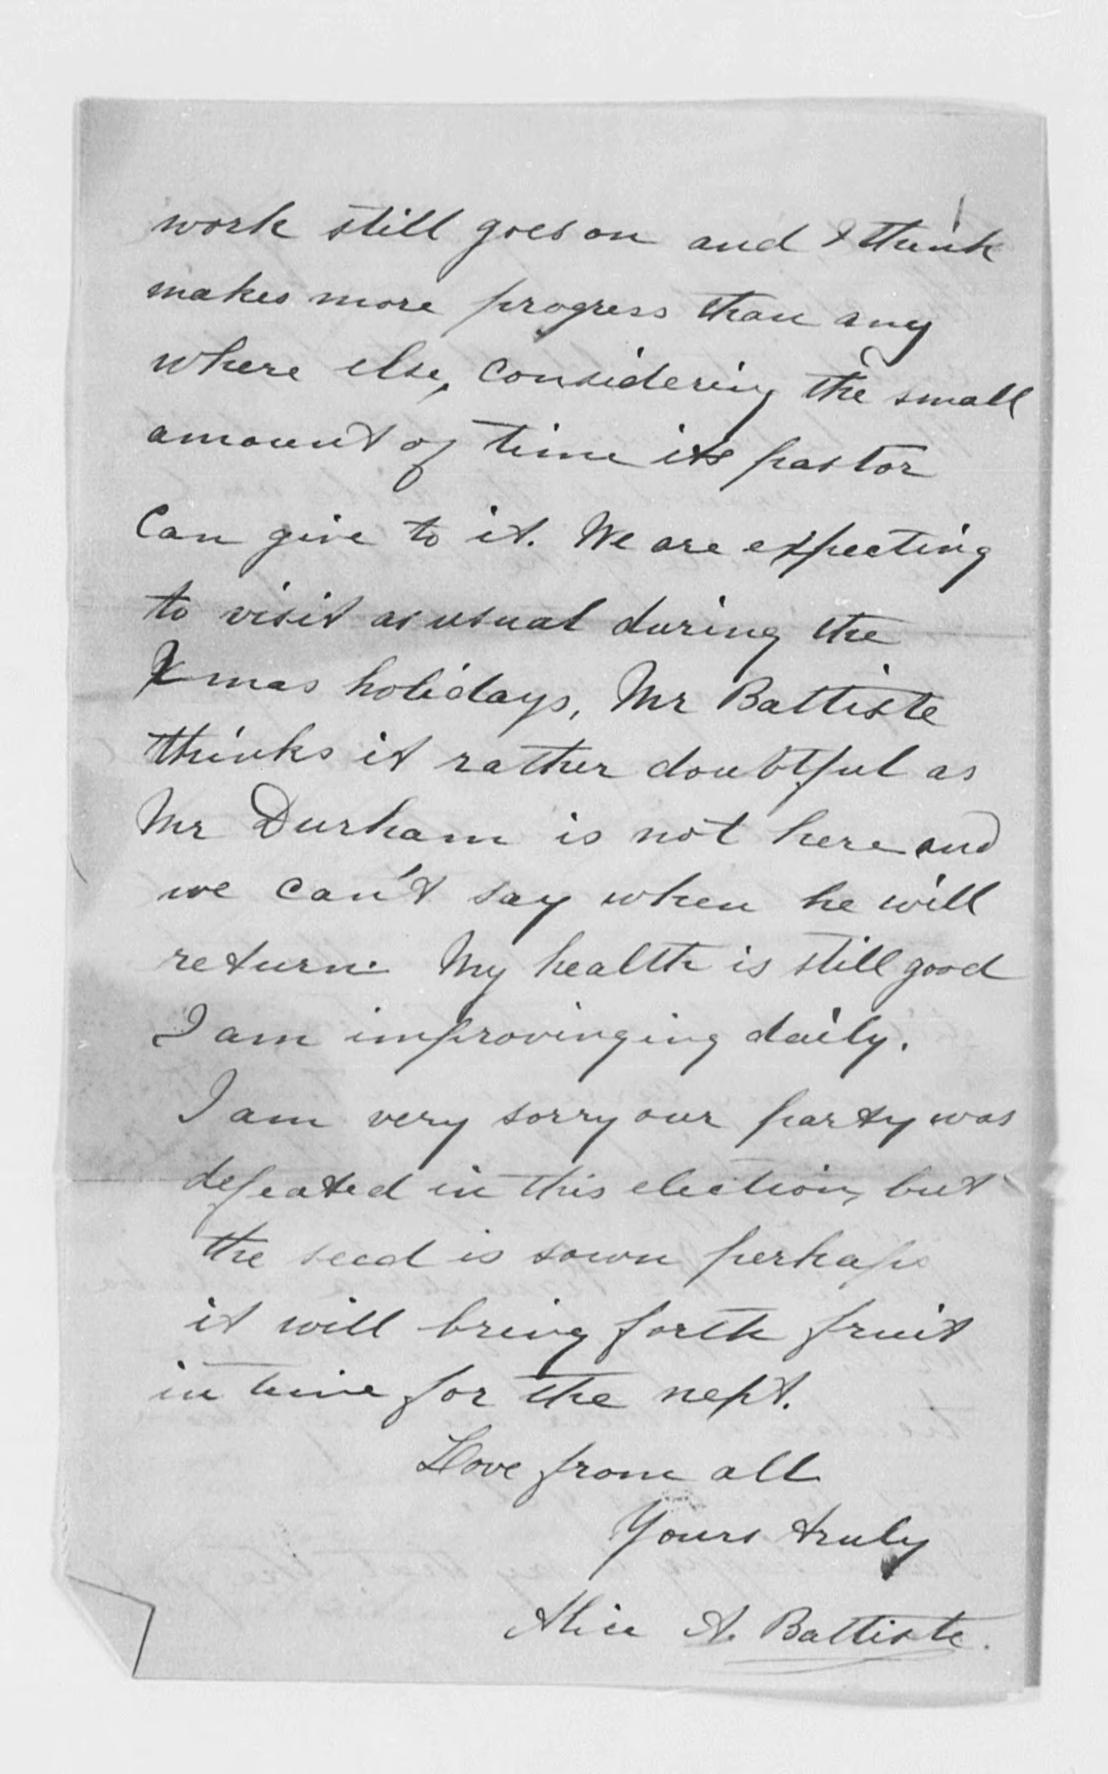 work still goes on and I think
makes more progress than any
where else, considering the small
amount of time its pastor
can give to it. We are expecting
to visit as usual during the
Xmas holidays, Mr Battiste
thinks it rather doubtful as
Mr Durham is not here and
we can't say when he will
return. My health is still good
I am improvinging daily.
I am very sorry our party was
defeated in this election, but
the seed is sown perhaps
it will bring forth fruit
in time for the next.
Love from all
Yours truly
Alice A. Battiste.